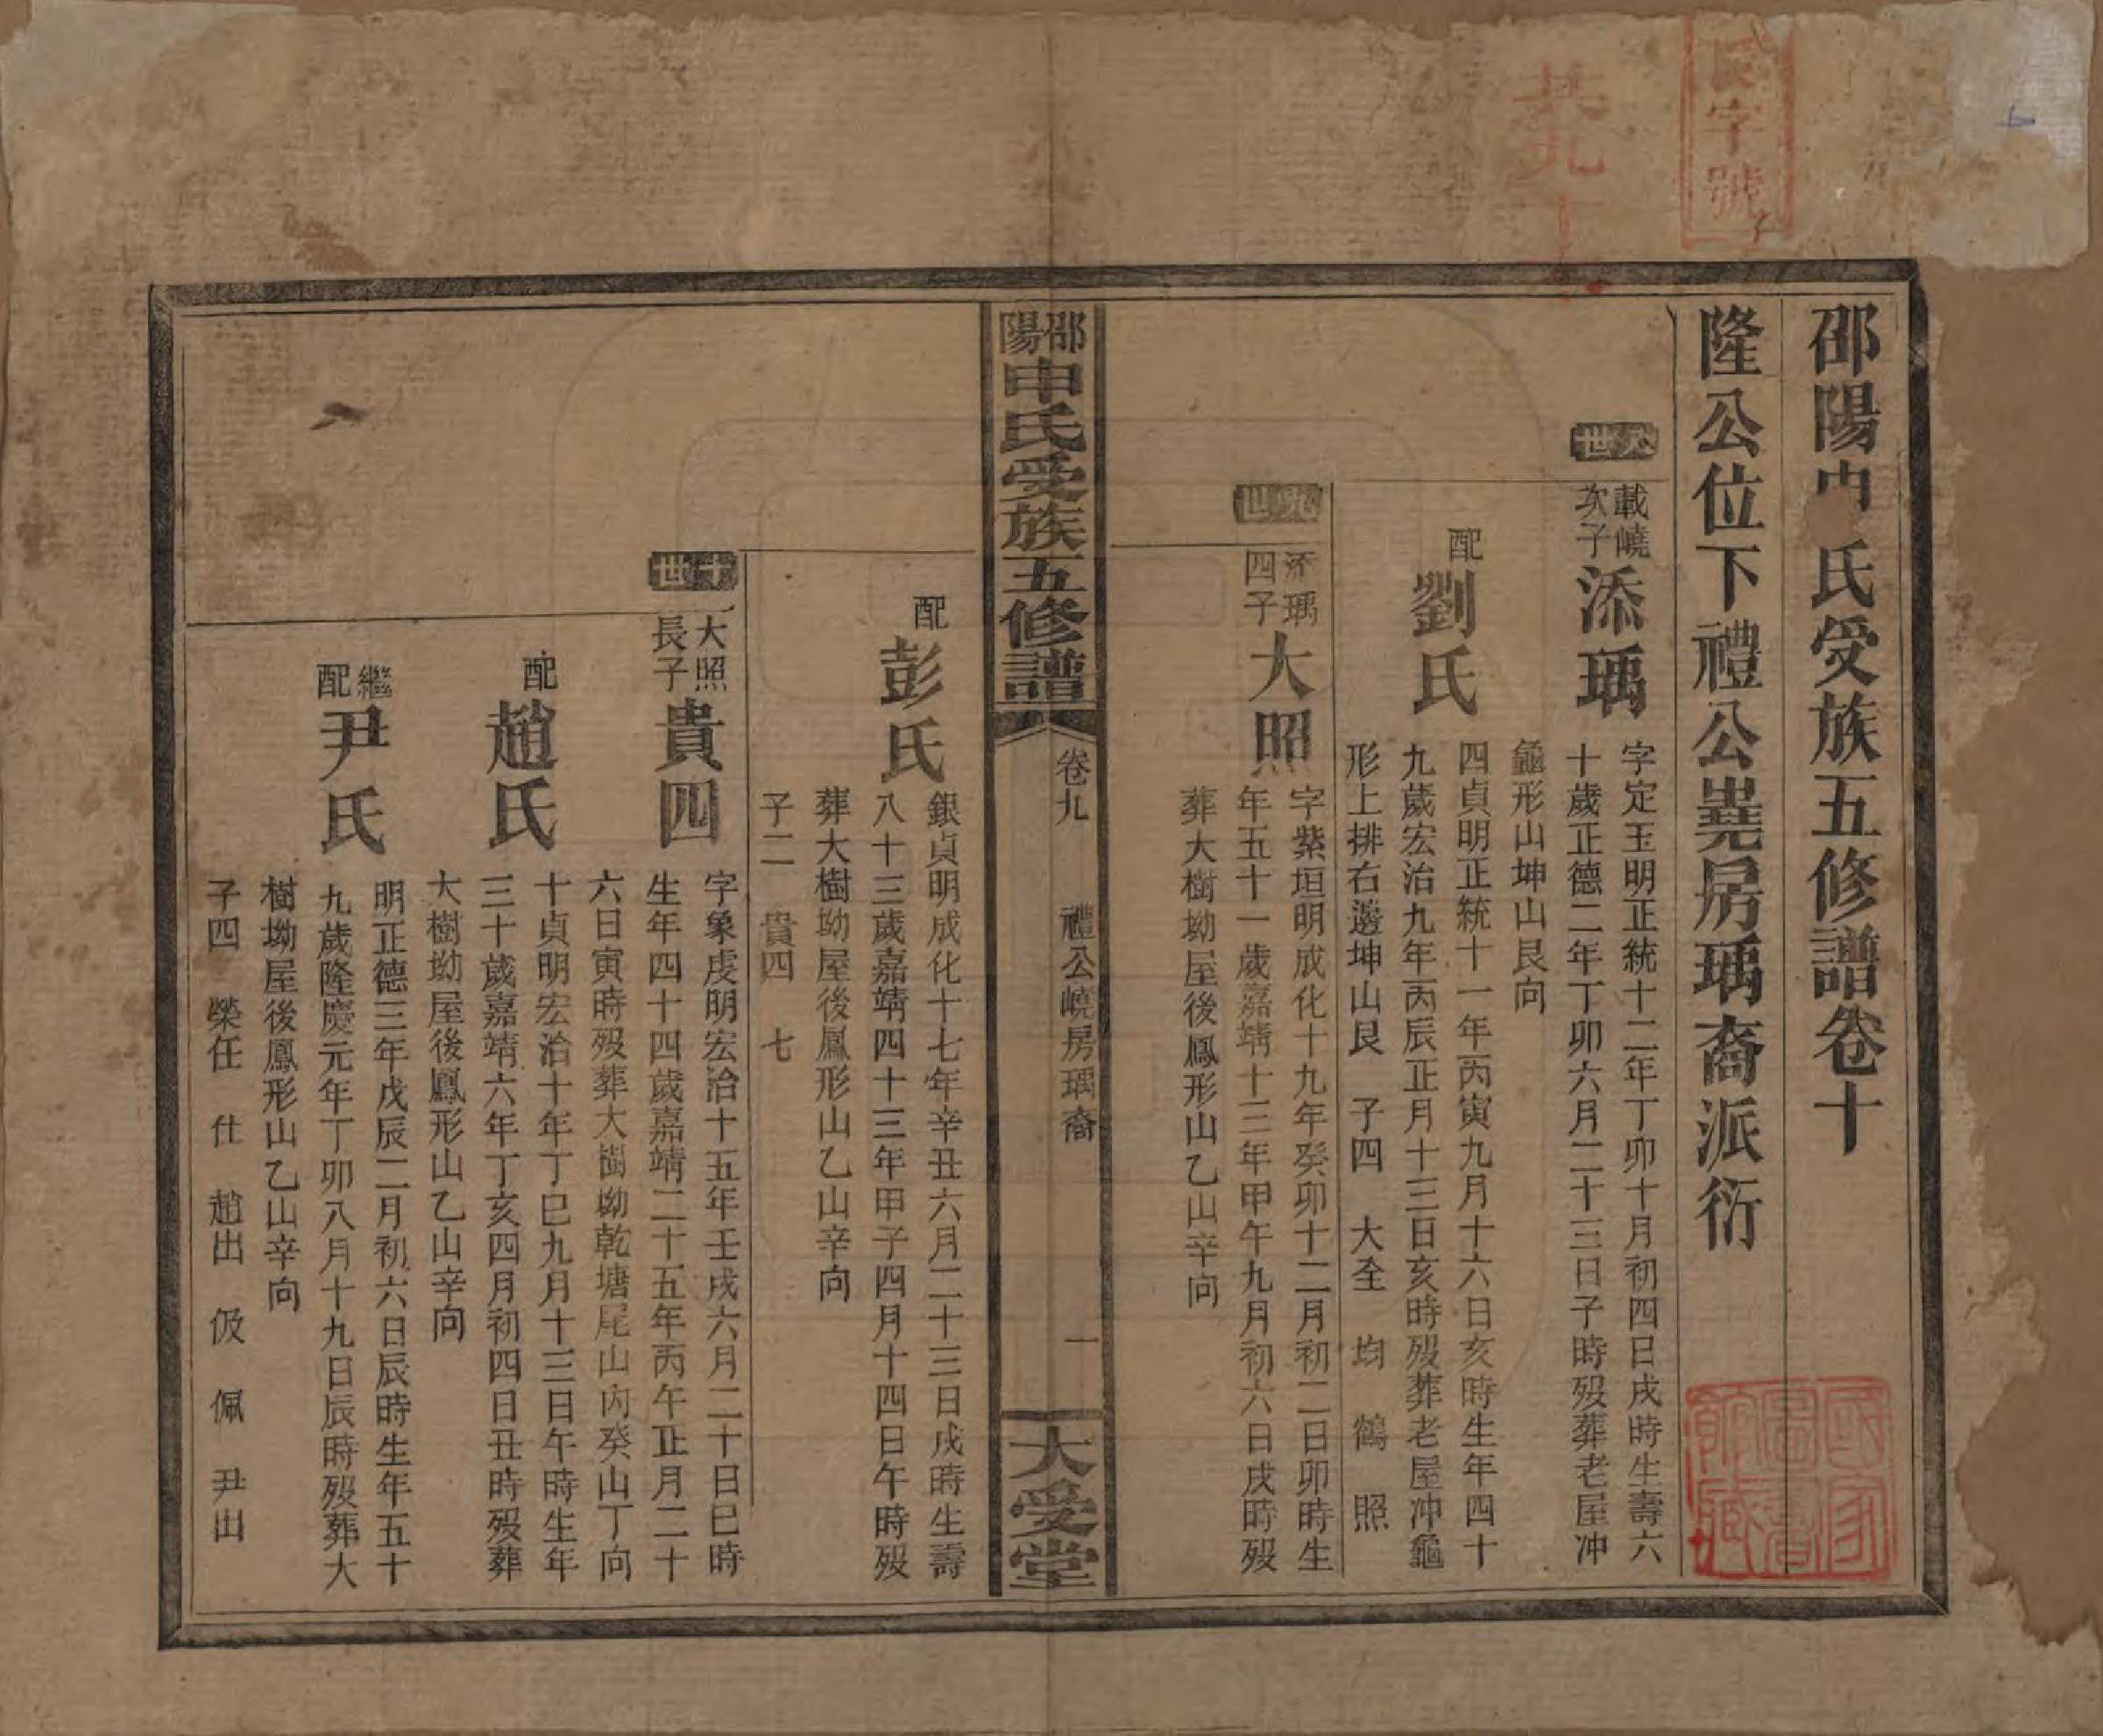 辰字號
共九十
邵陽申氏受族五修譜卷十
隆公位下禮公嶤房瑀裔派衍
國家圖書館藏
八世
載嶢次子
添瑀
字定玉明正統十二年丁卯十月初四日戌時生壽六
十歲正德二年丁卯六月二十三日子時歿葬老屋冲
龜形山坤山艮向
配
劉氏
四貞明正統十一年丙寅九月十六日亥時生年四十
九歲宏治九年丙辰正月十三日亥時歿葬老屋冲龜
形上排右邊坤山艮 子四 大全 均 鶴 照
九世
添瑀四子
大照
字紫垣明成化十九年癸卯十二月初二日卯時生
年五十一歲嘉靖十三年甲午九月初六日戌時歿
葬大樹坳屋後鳳形山乙山辛向
邵陽申氏受族五修譜
卷九
禮公嶢房瑀裔
一
大受堂
配
彭氏
銀貞明成化十七年辛丑六月二十三日戌時生壽
八十三歲嘉靖四十三年甲子四月十四日午時歿
葬大樹坳屋後鳳形山乙山辛向
子二 貴四 七
十世
大照長子
貴四
字象虔明宏治十五年壬戌六月二十日巳時
生年四十四歲嘉靖二十五年丙午正月二十
六日寅時歿葬大樹坳乾塘尾山內癸山丁向
配
趙氏
十貞明宏治十年丁巳九月十三日午時生年
三十歲嘉靖六年丁亥四月初四日丑時歿葬
大樹坳屋後鳳形山乙山辛向
繼配
尹氏
明正德三年戊辰二月初六日辰時生年五十
九歲隆慶元年丁卯八月十九日辰時歿葬大
樹坳屋後鳳形山乙山辛向
子四 榮任 仕 趙出 伋 佩 尹出